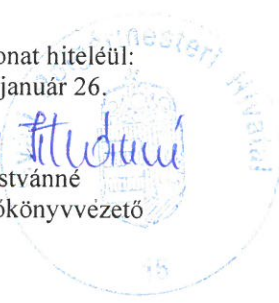 onat hiteléül:
január 26.
stvánné
ókönyvvezető